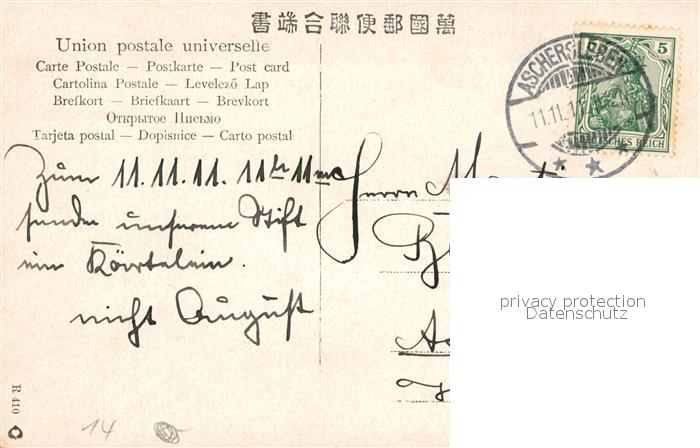 書端合聯便郵國萬
Union postale universelle
Carte Postale — Postkarte — Post card
Cartolina Postale — Levelező Lap
Brefkort — Briefkaart — Brevkort
Открытое Письмо
Tarjeta postal — Dopisnice — Carto postal
Zum 11.11.11. 11 Uhr 11
sende unserem Stift
ein Körtelein.
nicht August
Herrn
ASCHERSLEBEN
11.11.11
5
DEUTSCHES REICH
privacy protection
Datenschutz
R 410
14